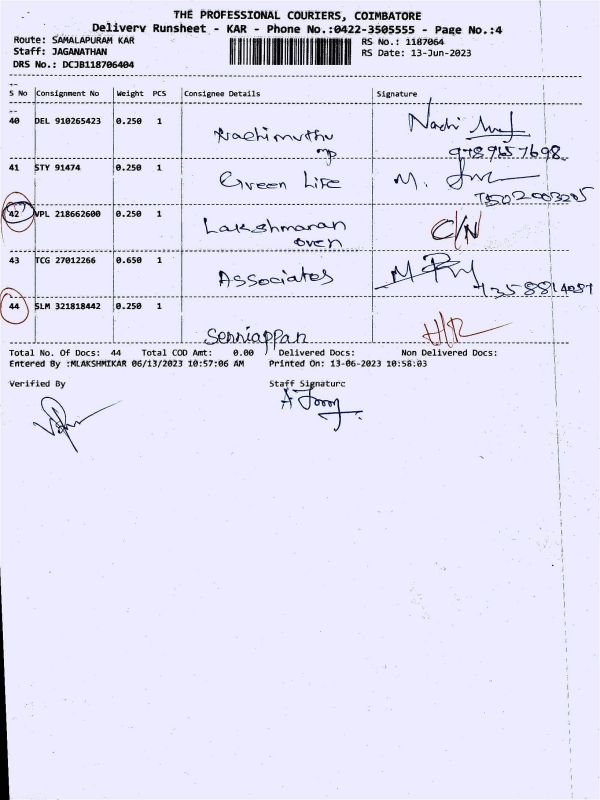 THE PROFESSIONAL COURIERS, COIMBATORE
Delivery Runsheet - KAR - Phone No.:0422-3505555 - Page No.:4
Route: SAMALAPURAM KAR
RS No.: 1187064
Staff: JAGANATHAN
RS Date: 13-Jun-2023
DRS No.: DCJB118706404
S No Consignment No Weight PCS Consignee Details Signature
40 DEL 910265423 0.250 1
Nachimuthu
Nachi
mp
41 STY 91474 0.250 1
Green Life
M.
42 VPL 218662600 0.250 1
Lakshmanan
C/N
oven
43 TCG 27012266 0.650 1
Associates
44 SLM 321818442 0.250 1
Senniappan
Total No. Of Docs: 44 Total COD Amt: 0.00 Delivered Docs: Non Delivered Docs:
Entered By :MLAKSHMIKAR 06/13/2023 10:57:06 AM Printed On: 13-06-2023 10:58:03
Verified By Staff Signature